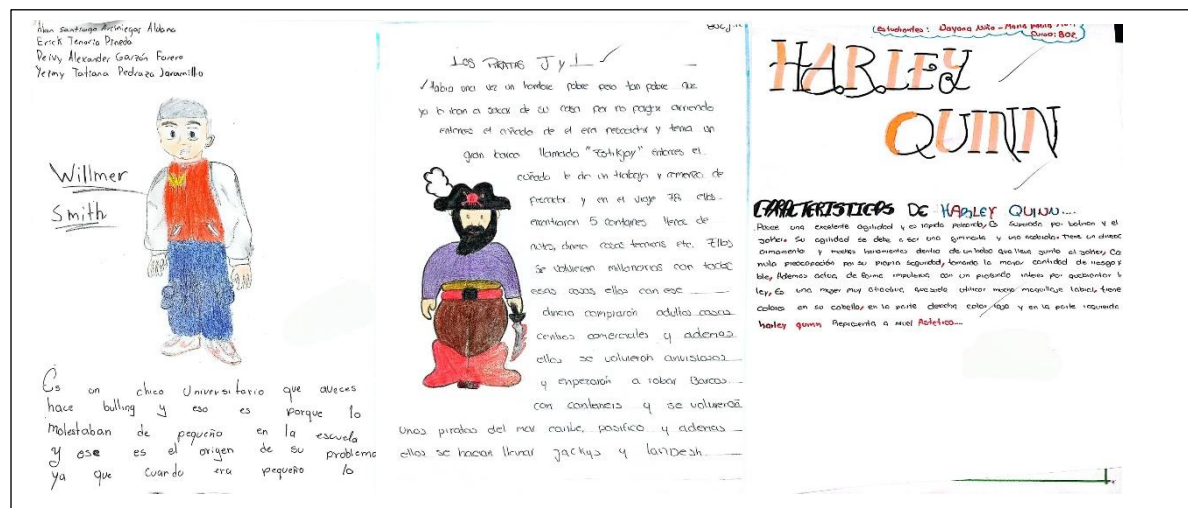 Alan Santiago Arciniegas Aldana
Erick Tenorio Pinedo
Deivy Alexander Garzón Forero
Yeimy Tatiana Pedraza Jaramillo
Willmer
Smith
Es un chico Universitario que aveces
hace bulling y eso es porque lo
molestaban de pequeño en la escuela
y ese es el origen de su problema
ya que cuando era pequeño lo
LOS PIRATAS J y L
Habia una vez un hombre pobre pero tan pobre que
ya lo iban a sacar de su casa por no pagar arriendo
entonces el cuñado de el era pescador y tenia un
gran barco llamado entonces el
cuñado le dio un trabajo y comenzo de
pescador y en el viaje 78 ellos
encontraron 5 llenos de
dinero cosas etc. Ellos
se volvieron millonarios con todas
esas cosas ellos con ese
dinero compraron casas
centros comerciales y ademas
ellos se volvieron
y enpezaron a robar Barcos
con y se volvieron
Unos piratas del mar caribe, pasifico y ademas
ellos se hacan llamar Jackys y landesh
Estudiantes: Dayana Niño - Maria Paula
Curso: 802
HARLEY
QUINN
CARACTERISTICAS DE HARLEY QUINN...
Posee una excelente agilidad y es rapida peleando, Es superada por batman y el
joker. Su agilidad se debe a ser una gimnasta y una acrobata. Tiene un
armamento y muchas herramientas dentro de un bolso que lleva junto al joker,
nula preocupación por su propia seguridad, tomando la mayor cantidad de riesgo
ble, Ademas actua de forma impulsiva con un profundo interes por quebrantar l
ley, Es una mujer muy atractiva, que suele utilizar mucho maquillaje labial, tiene
colores en su cabello, en la parte derecha color rojo y en la parte izquierda
harley quinn Representa a nivel